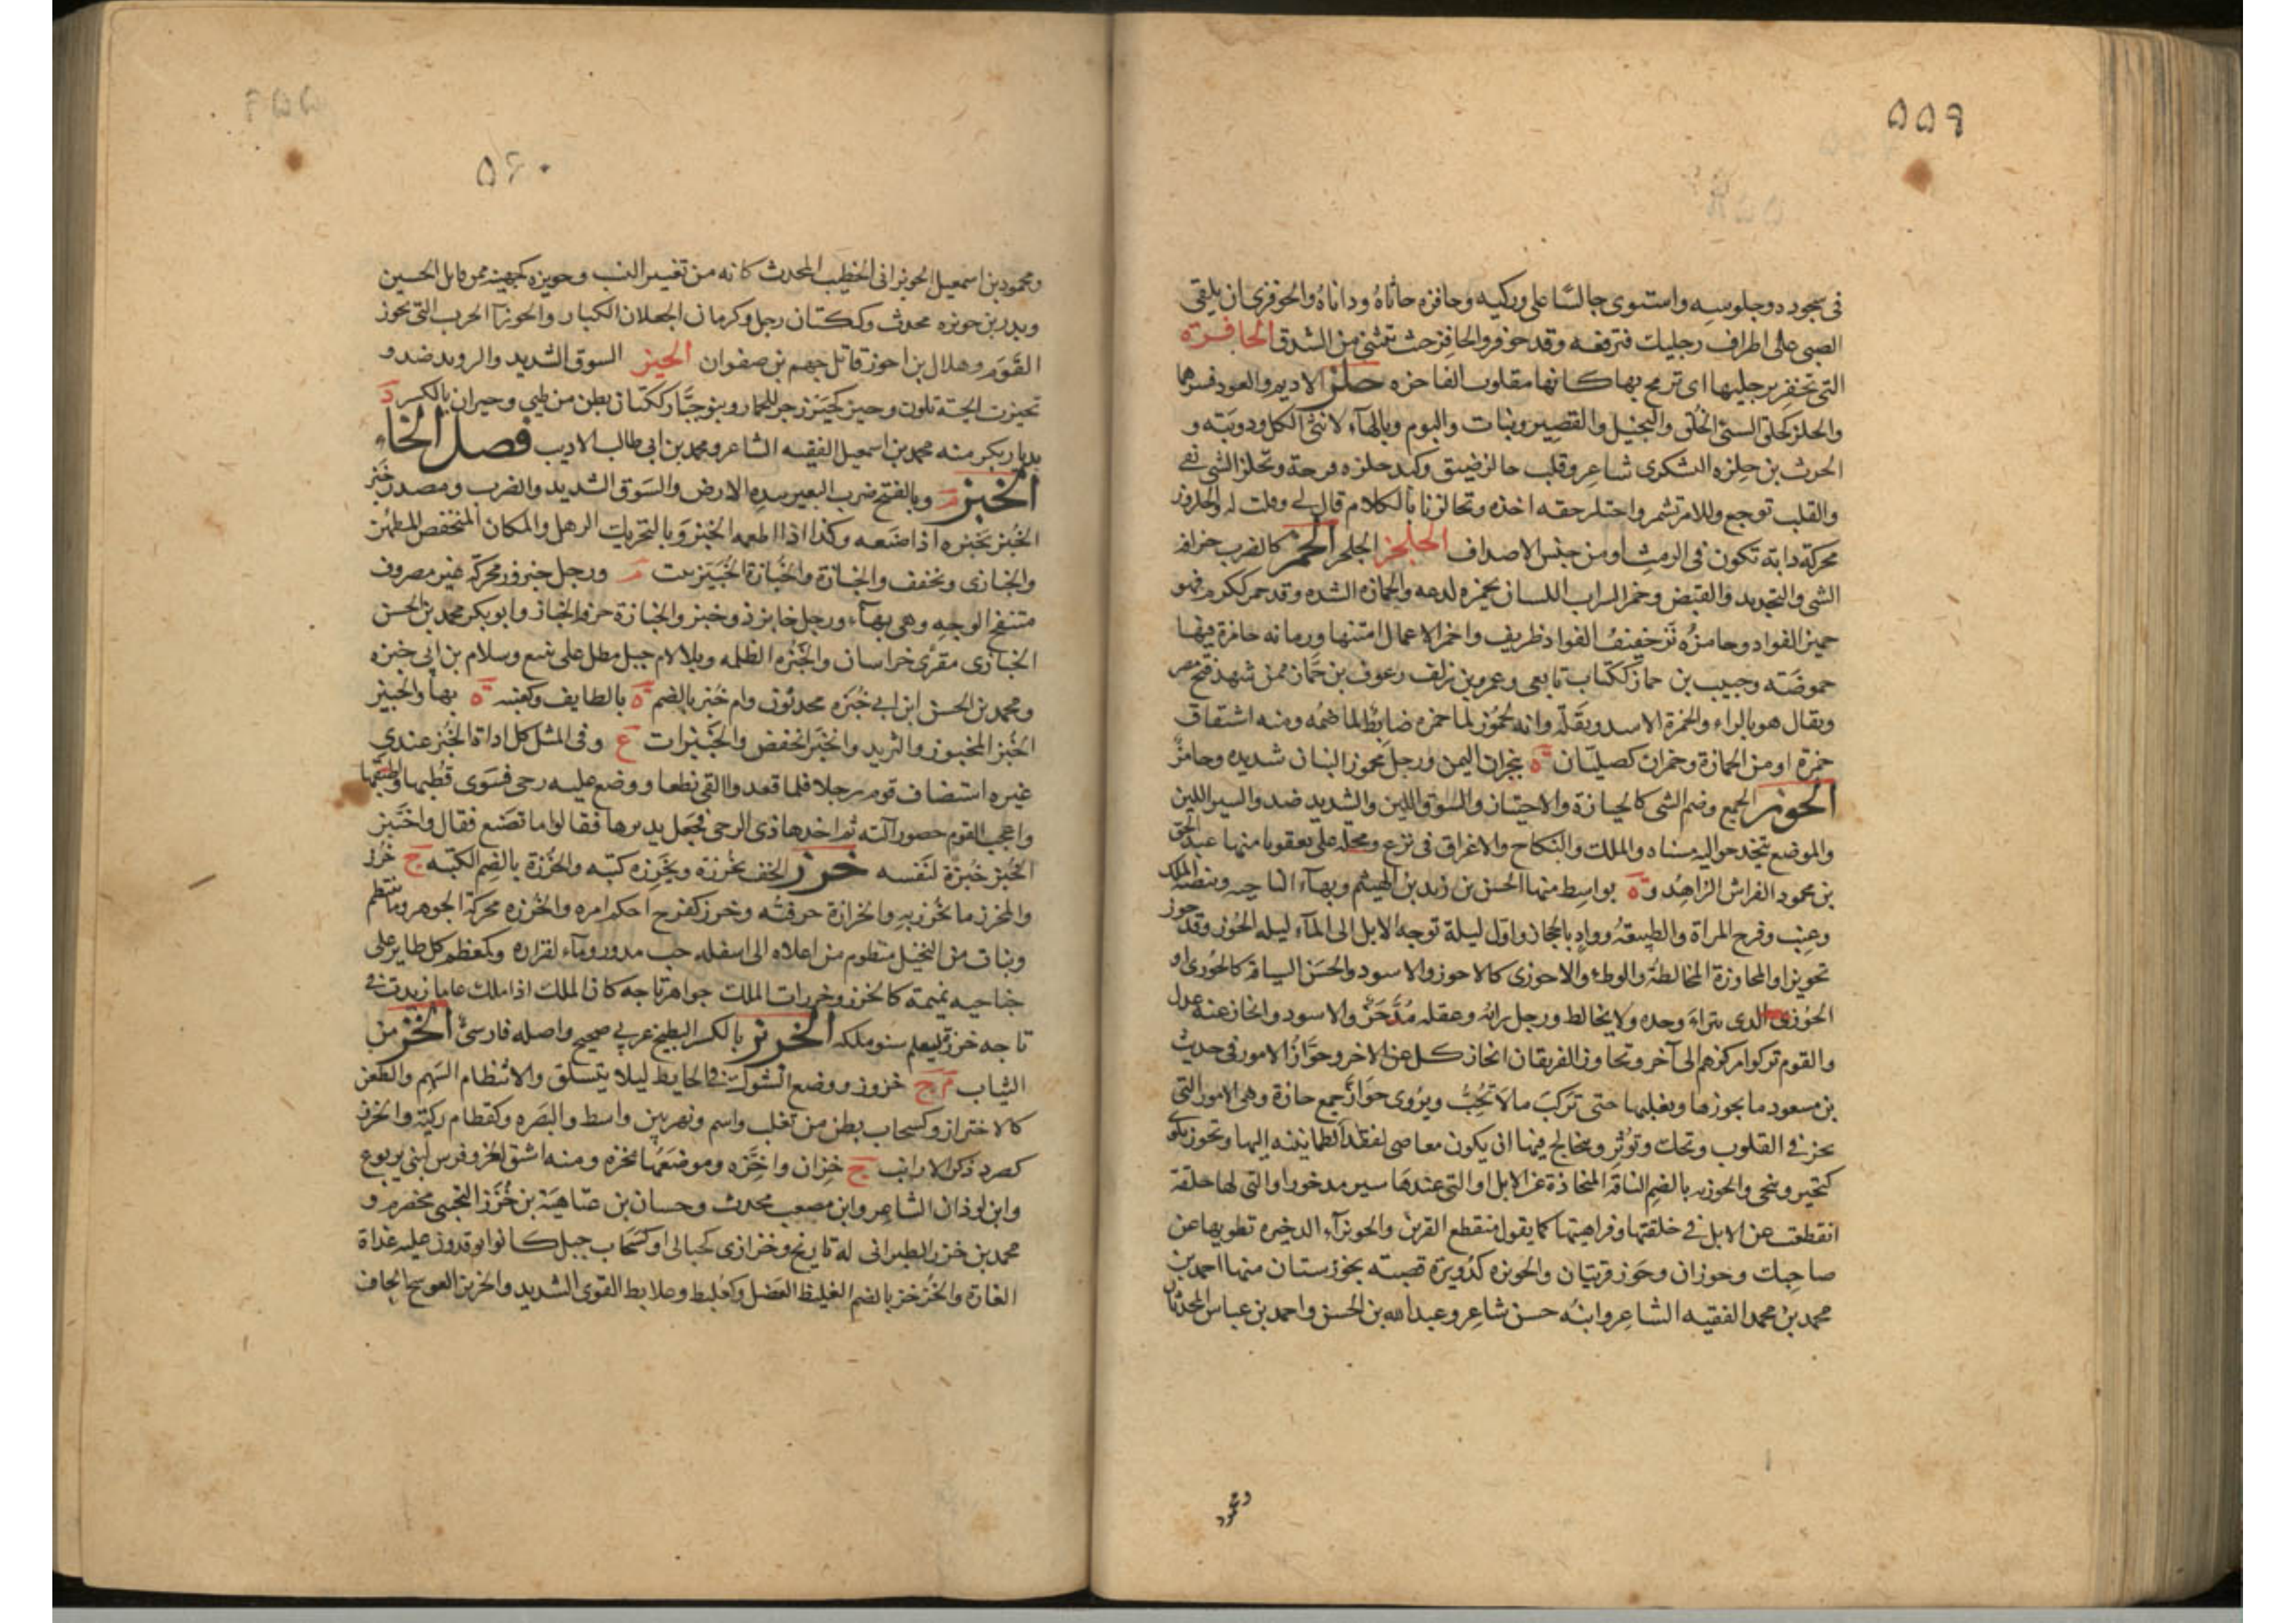 ٥٥٩
في سجوده وجلوسه واستوى جالسا على وركيه وحافزه جاثاه وداناه والحوفزى ان يلقى
الصبى على اطراف رجليك فترفعه وقد حوفز والحافز حيث ينثنى من الشدق الحافزة
التى تحفز برجليها اى ترمح بها كانها مقلوب الفاحزه حلز الاديم والعود قشرهما
والحلز كحلق السيئ الخلق والبخيل والقصير ونبات والبوم وبالهاء لانثى الكل ودويبة و
الحرث بن حلزه اليشكرى شاعر وقلب حالز ضيق وكبد حلزه قرحة وتحلز الشى بقى
والقلب توجع وللامر تشمر واحتلز حقه اخذه وتحالزنا بالكلام قال لى وقلت له والحلزون
محركة دابة تكون فى الرمث او من جنس الاصداف الجلحز الجلحز الحمز كالضرب حرافة
الشى والتحديد والقبض وحمز الشراب اللسان يحمزه لدعه والحمازه الشده وقد حمز ككرم فهو
حميز الفواد وحامزه نز خفيف الفواد ظريف واحمز الاعمال امتنها ورمانه حامزة فيها
حموضة وحبيب بن حماز ككتاب تابعى وعمرو بن زلف وعوف بن حماز ممن شهد فتح مصر
ويقال هو بالراء والحمزة الاسد وبقلة وانه لحموز لما حمزه ضابط لما ضمه ومنه اشتقاق
حمزة او من الحمازة وحمزان كصليان ة بنجران اليمن ورجل محموز البنان شديده وحامز
الحوز الجمع وضم الشى كالحيازة والاحتياز والسوق اللين والشديد ضد والسير اللين
والموضع يتخذ حواليه مسناه والملك والنكاح والاغراق فى نزع ومحلة على يعقوبا منها عبد الحق
بن محمود الفراش الزاهد وة بواسط منها الحسن بن زيد بن الهيثم وبهاء الناحيه وبيضة الملك
وعنب وفرج المراة والطبيعة وواد بالحجاز واول ليلة توجه الابل الى الماء ليله الحوز وقد حوز
تحويزا والمحاوزة المخالطة والوطء والاحوزى كالاحوز والاسود والحسن السياقة كالحوزى او
الحوزى الذى يتراء وحده ولا يخالط ورجل رايه وعقله مدخر والاسود وانحاز عنه عدل
والقوم تركوا مركزهم الى آخر وتحاوز الفريقان انحاز كل عن الاخر وحواز الامور فى حديث
بن مسعود ما يحوزها ويغلبها حتى تركب ما لا تحب ويروى حواز جمع حازة وهى الامور التى
تحز فى القلوب وتحك وتوثر ويخالج فيها ان يكون معاصى لفقد الطمانينه اليها وتحوز تلوى
كتحيز وتنحى والحوزيه بالضم الناقة المنحازة عن الابل او التى عندها سير مدخور او التى لها خلقة
انقطعت عن الابل فى خلقتها وفراهيتها كما يقول منقطع القرين والحوزاء الدخيره تطويها عن
صاحبك وحوزان وحوز قريتان والحويزه كدويرة قصبة بخوزستان منها احمد بن
محمد بن محمد الفقيه الشاعر وابنه حسن شاعر وعبد الله بن الحسن واحمد بن عباس المحدثان
ومحمود
٥٦٠
ومحمود بن اسمعيل الحويزانى الخطيب المحدث كانه من تغيير النسب وحويزه كجهينه ممن قاتل الحسين
وبدر بن حويزه محدث وككتان رجل وكرمان الجعلان الكبار والحوزآ الحرب التى تحوز
القوم وهلال بن احوز قاتل جهم بن صفوان الحيز السوق الشديد والرويد ضد و
تحيزت الحية تلوت وحيز كحيز زجر للحمار وبنو حيّاز ككتان بطن من طيى وحيزان بالكسر د
بديار بكر منه محمد بن اسمعيل الفقيه الشاعر ومحمد بن ابى طالب الاديب فصل الخاء
الخبز م وبالفتح ضرب البعير بيده الارض والسوق الشديد والضرب ومصدر خبز
الخبز يخبزه اذا صنعه وكذا اذا اطعمه الخبز وبالتحريك الرهل والمكان المنخفض المطمئن
والخبازى ويخفف والخبازة والخبازة الخبيز نبت م ورجل خبزون محركة غير مصروف
منتفخ الوجه وهى بهآء ورجل خابز ذو خبز والخبازة حرفة الخباز وابو بكر محمد بن الحسن
الخبازى مقرى خراسان والخبزه الظلمه وبلا لام جبل مطل على ينبع وسلام بن ابى خبزه
ومحمد بن الحسن ابن ابى خبزه محدثون وام خبز بالضم ة بالطايف وكعنبه ة بها والخبيز
الخبز المخبوز والثريد وانخبز انخفض والخبيزات ع وفى المثل كل اداة الخبز عندى
غيره استضاف قوم رجلا فلما قعدوا القى نطعا ووضع عليه رحى فسوى قطبها واطبقها
واعجب القوم حضور آلته ثم اخذ هادى الرحى فجعل يديرها فقالوا ما تصنع فقال واختبز
الخبز خبزة لنفسه خرز الخف يخرزة ويخرزه كتبه والخرزة بالضم الكتبه ج خرز
والمخرز ما يخرز به والخرازة حرفته وخرز كفرح احكم امره والخرزه محركة الجوهر وما ينتظم
ونبات من النخيل منظوم من اعلاه الى اسفله حب مدور وماء لفزاره وكمعظم كل طاير على
جناحيه نميمة كالخرز وخرزات الملك جواهر تاجه كان الملك اذا ملك عاما زيدت فى
تاجه خرزة ليعلم سنو ملكه الخربز بالكسر البطيخ عربى صحيح واصله فارسى الخز من
الثياب م ج خزوز ووضع الشوك فى الحايط ليلا يتسلق والانتظام السهم والطعن
كالاختزاز وكسحاب بطن من تغلب واسم ونهر بين واسط والبصره وكقطام ركية والخزز
كصرد ذكر الارانب ج خزان واخزه وموضعها مخزه ومنه اشتق الخز وفرس لبنى يربوع
وابن لوذان الشاعر وابن مصعب محدث وحسان بن عتاهية بن خزز التجيبى مخضرم و
محمد بن خزز الطبرانى له تاريخ وخزازى كحبالى او كسحاب جبل كانوا يوقدون عليه غداة
الغارة والخزخز بالضم الغليظ العضل وكعلبط وعلابط القوى الشديد والخزيز العوسج الجاف